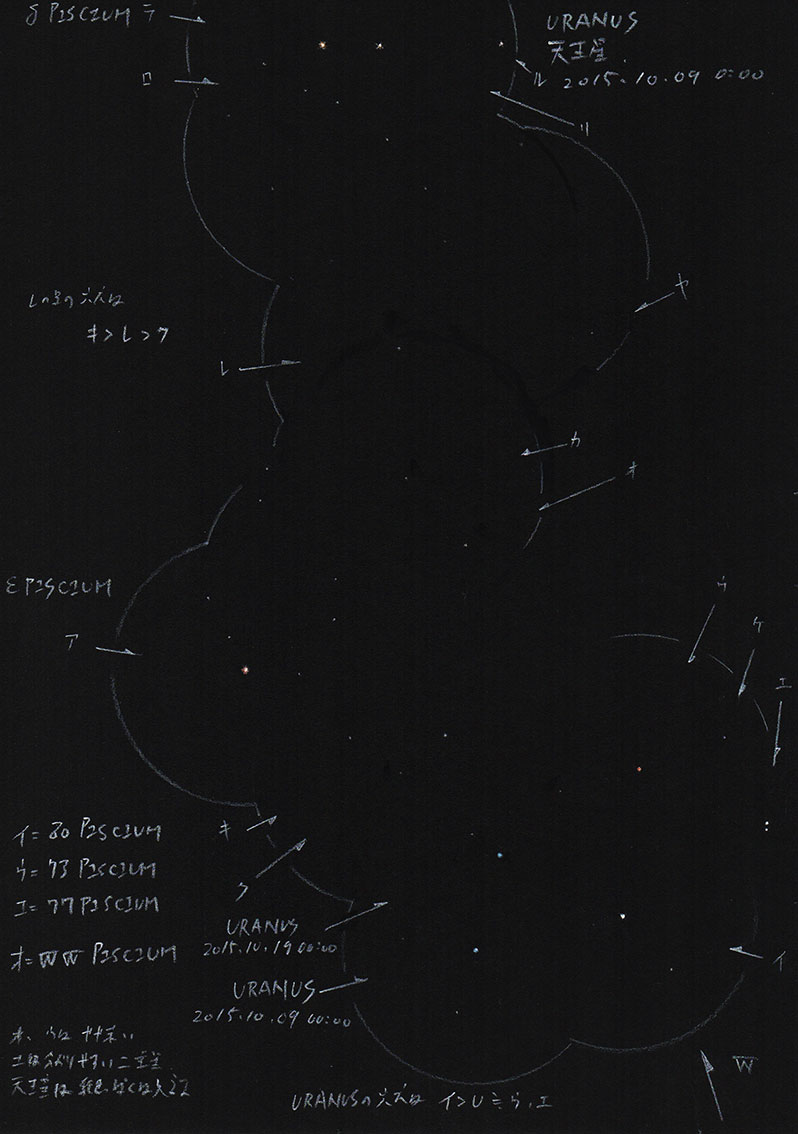 δ PISCIUM テ
URANUS
天王星
2015.10.09 0:00
ル
ロ
リ
ヤ
レの星の
キ>レ>ク
レ
カ
オ
ε PISCIUM
ア
ウ
ケ
エ
イ= 80 PISCIUM
ウ= 73 PISCIUM
エ= 77 PISCIUM
オ= WW PISCIUM
キ
ク
URANUS
2015.10.19 00:00
URANUS
2015.10.09 00:00
イ
W
オ、ウは
エは 二重星
天王星は
URANUSの は イ>U≒ウ,エ